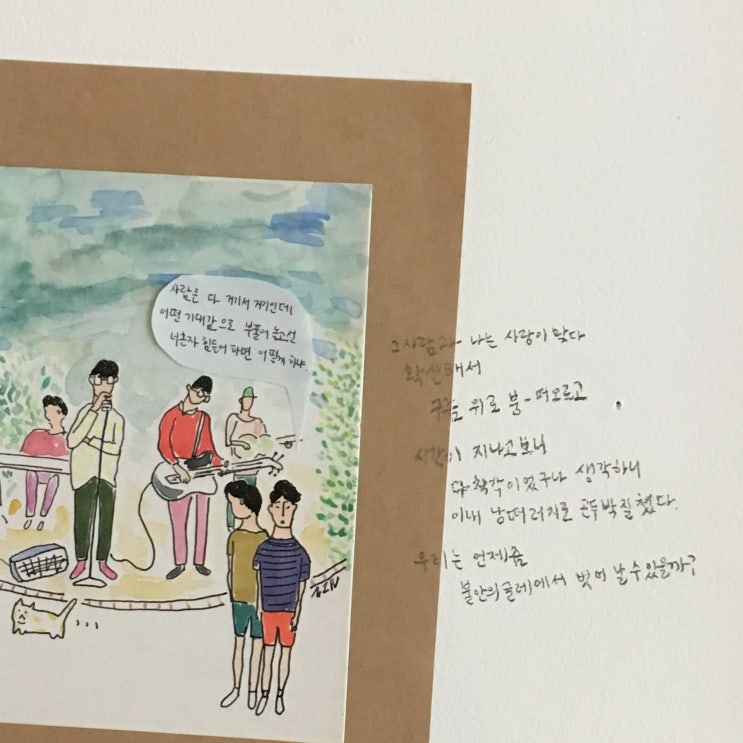 사람은 다 거기서 거기인데
어떤 기대감으로 부풀어 놓고선
너혼자 힘들어 하면 어떻게 하냐.
그사람과 나는 사랑이 맞다
확신해서
구름 위로 붕- 떠오르고
시간이 지나고보니
다 착각이었구나 생각하니
이내 낭떠러지로 곤두박질쳤다.
우리는 언제쯤
불안의 굴레에서 벗어 날 수 있을까?